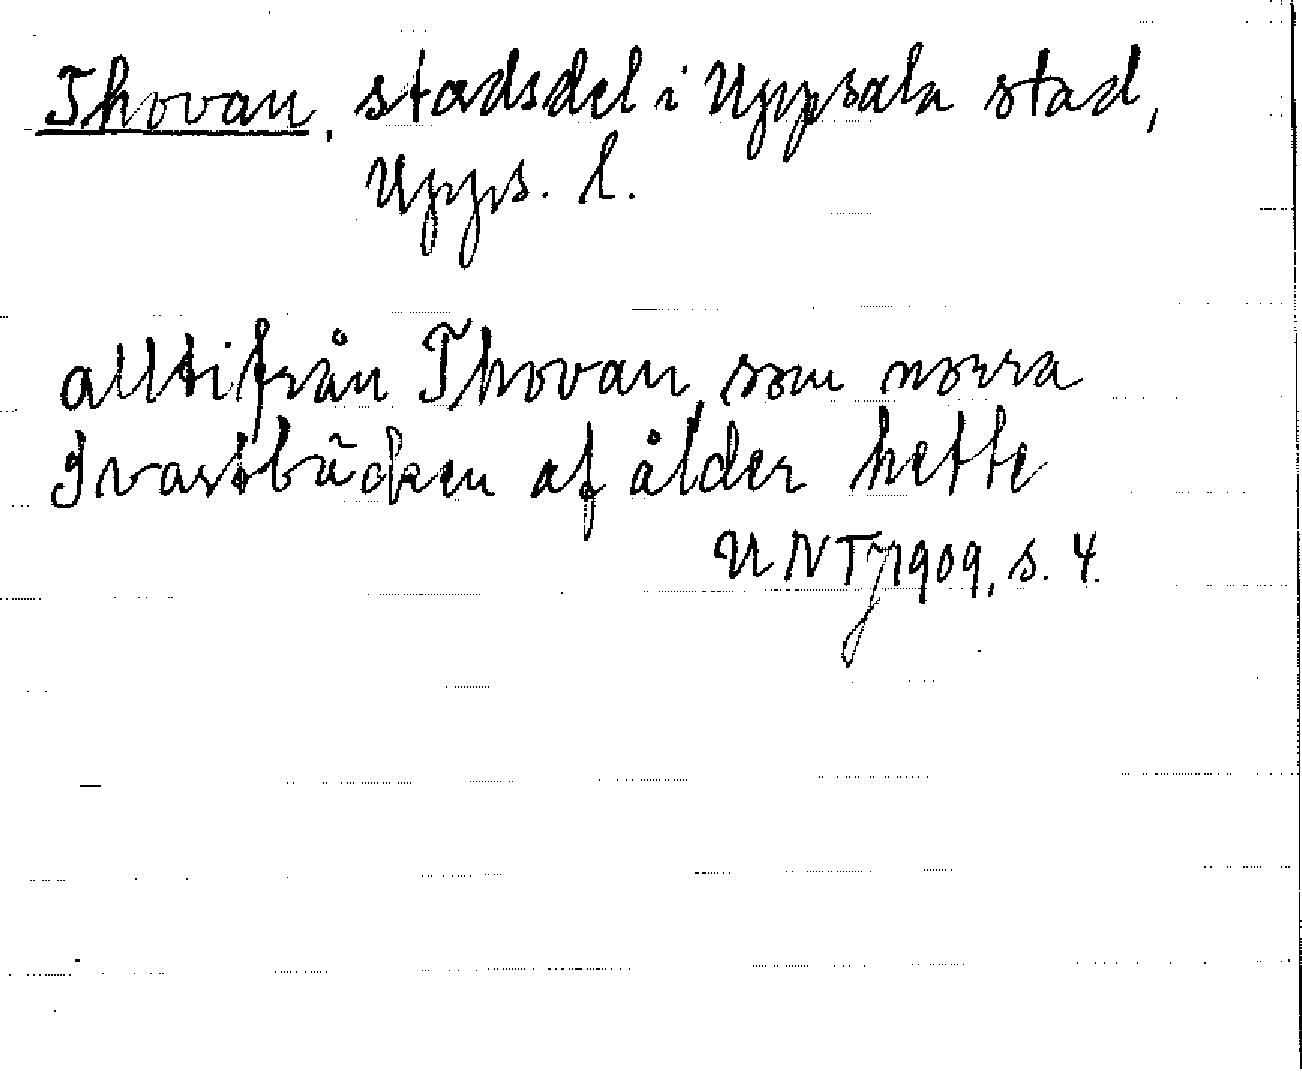 Thovan, stadsdel i Uppsala stad,
Upps. l.
alltifrån Thovan, som norra
Svartbäcken af ålder hette
UNTJ 1909, s. 4.